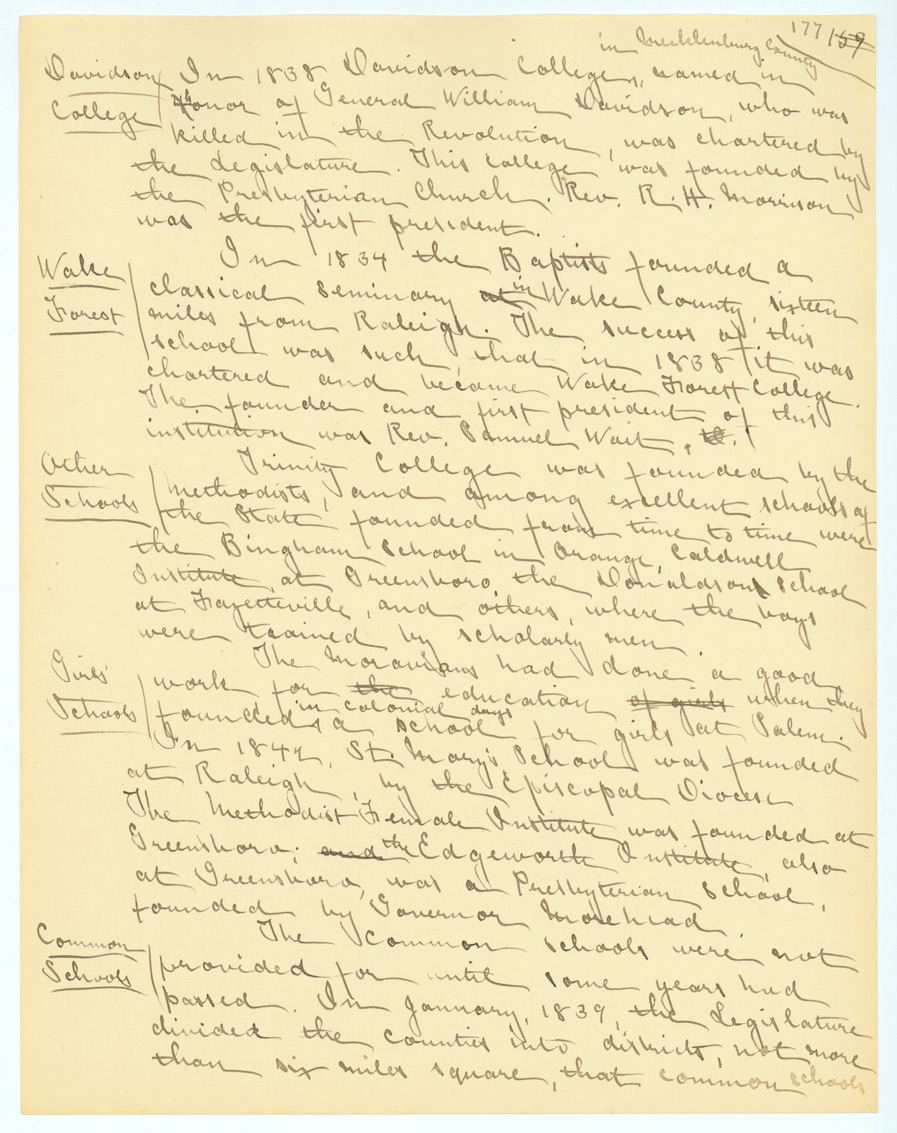 177 159
in Mecklenburg County
Davidson In 1838 Davidson College, named in
College Honor of General William Davidson, who was
killed in the Revolution, was chartered by
the Legislature. This college was founded by
the Presbyterian Church. Rev. R. H. Morrison
was the first president.
In 1834 the Baptists founded a
Wake classical seminary at in Wake County, sixteen
Forest miles from Raleigh. The success of this
school was such that in 1838 it was
chartered and became Wake Forest College.
The founder and first president of this
institution was Rev. Samuel Wait.
Other Trinity College was founded by the
Schools Methodists, and among excellent schools of
the State founded from time to time were
the Bingham School in Orange, Caldwell
Institute at Greensboro, the Donaldson School
at Fayetteville, and others, where the boys
were trained by scholarly men.
Girls' The Moravians had done a good
work for the education of girls when they
in colonial days
Schools founded a school for girls at Salem.
In 1842, St. Mary's School was founded
at Raleigh, by the Episcopal Diocese
The Methodist Female Institute was founded at
Greensboro; and the Edgeworth Institute, also
at Greensboro, was a Presbyterian School,
founded by Governor Morehead.
Common The common schools were not
Schools provided for until some years had
passed. In January, 1839, the Legislature
divided the counties into districts, not more
than six miles square, that common schools